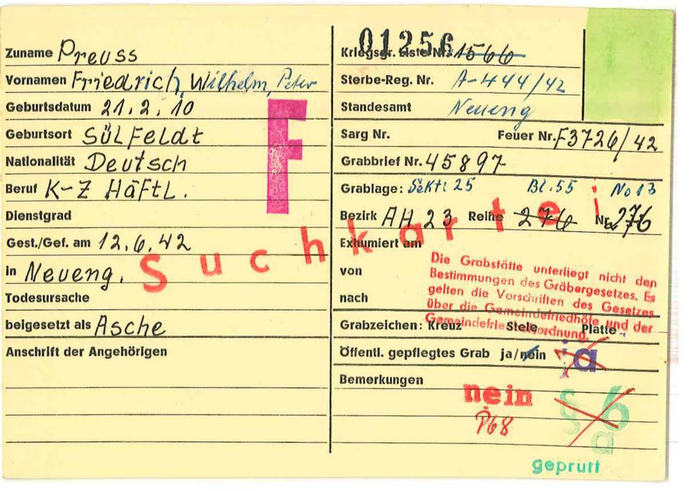 Zuname Preuss
Vornamen Friedrich, Wilhelm, Peter
Geburtsdatum 21.2.10
Geburtsort SÜLFELDT
Nationalität Deutsch
Beruf K-Z HÄFTL.
Dienstgrad
Gest./Gef. am 12.6.42
in Neueng.
Todesursache
beigesetzt als Asche
Anschrift der Angehörigen
F
Suchkartei
01256
Kriegsgr. Liste Nr. 1566
Sterbe-Reg. Nr. A-444/42
Standesamt Neueng
Sarg Nr. Feuer Nr. F3726/42
Grabbrief Nr. 45897
Grablage: Sekt: 25 Bl. 55 No 13
Bezirk AH 23 Reihe 276 Nr. 276
Exhumiert am
von
nach
Die Grabstätte unterliegt nicht den
Bestimmungen des Gräbergesetzes. Es
gelten die Vorschriften des Gesetzes
über die Gemeindefriedhöfe und der
Gemeindefriedhofsordnung.
Grabzeichen: Kreuz Stele Platte
Öffentl. gepflegtes Grab ja/nein ja
Bemerkungen
nein
P68
§ 6
a
geprüft